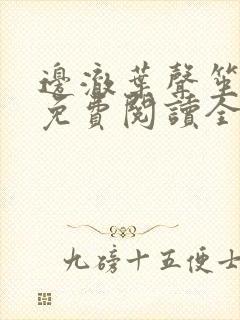 邊澈葉聲笙
免費閱讀全
九磅十五便士